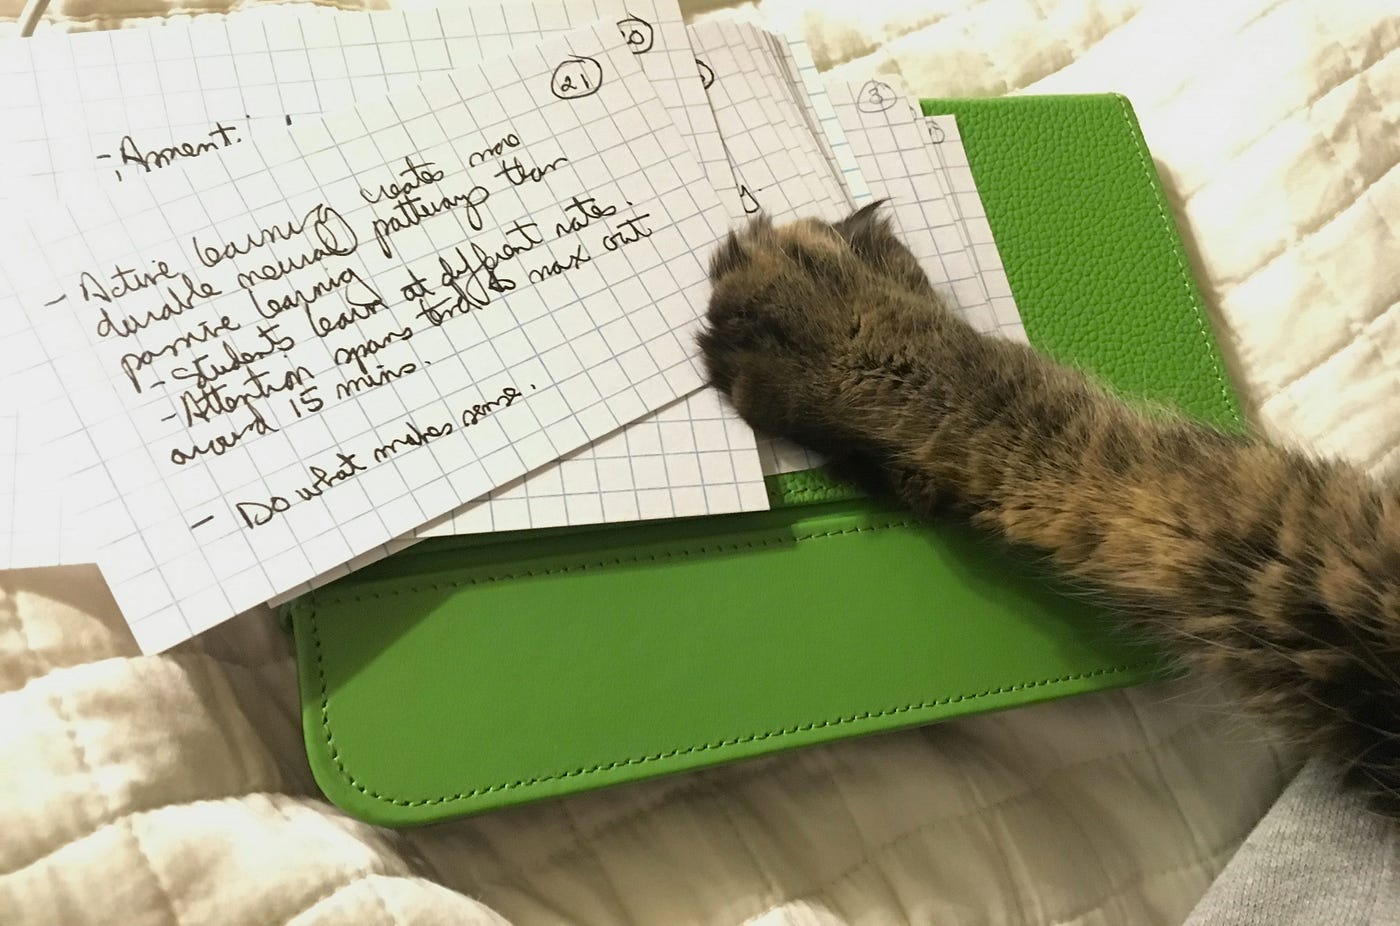 21
- Active learning creates more
durable neural pathways than
passive learnig
- Students learn at different rates.
- Attention spans tend to max out
around 15 mins.
- Do what makes sense.
3